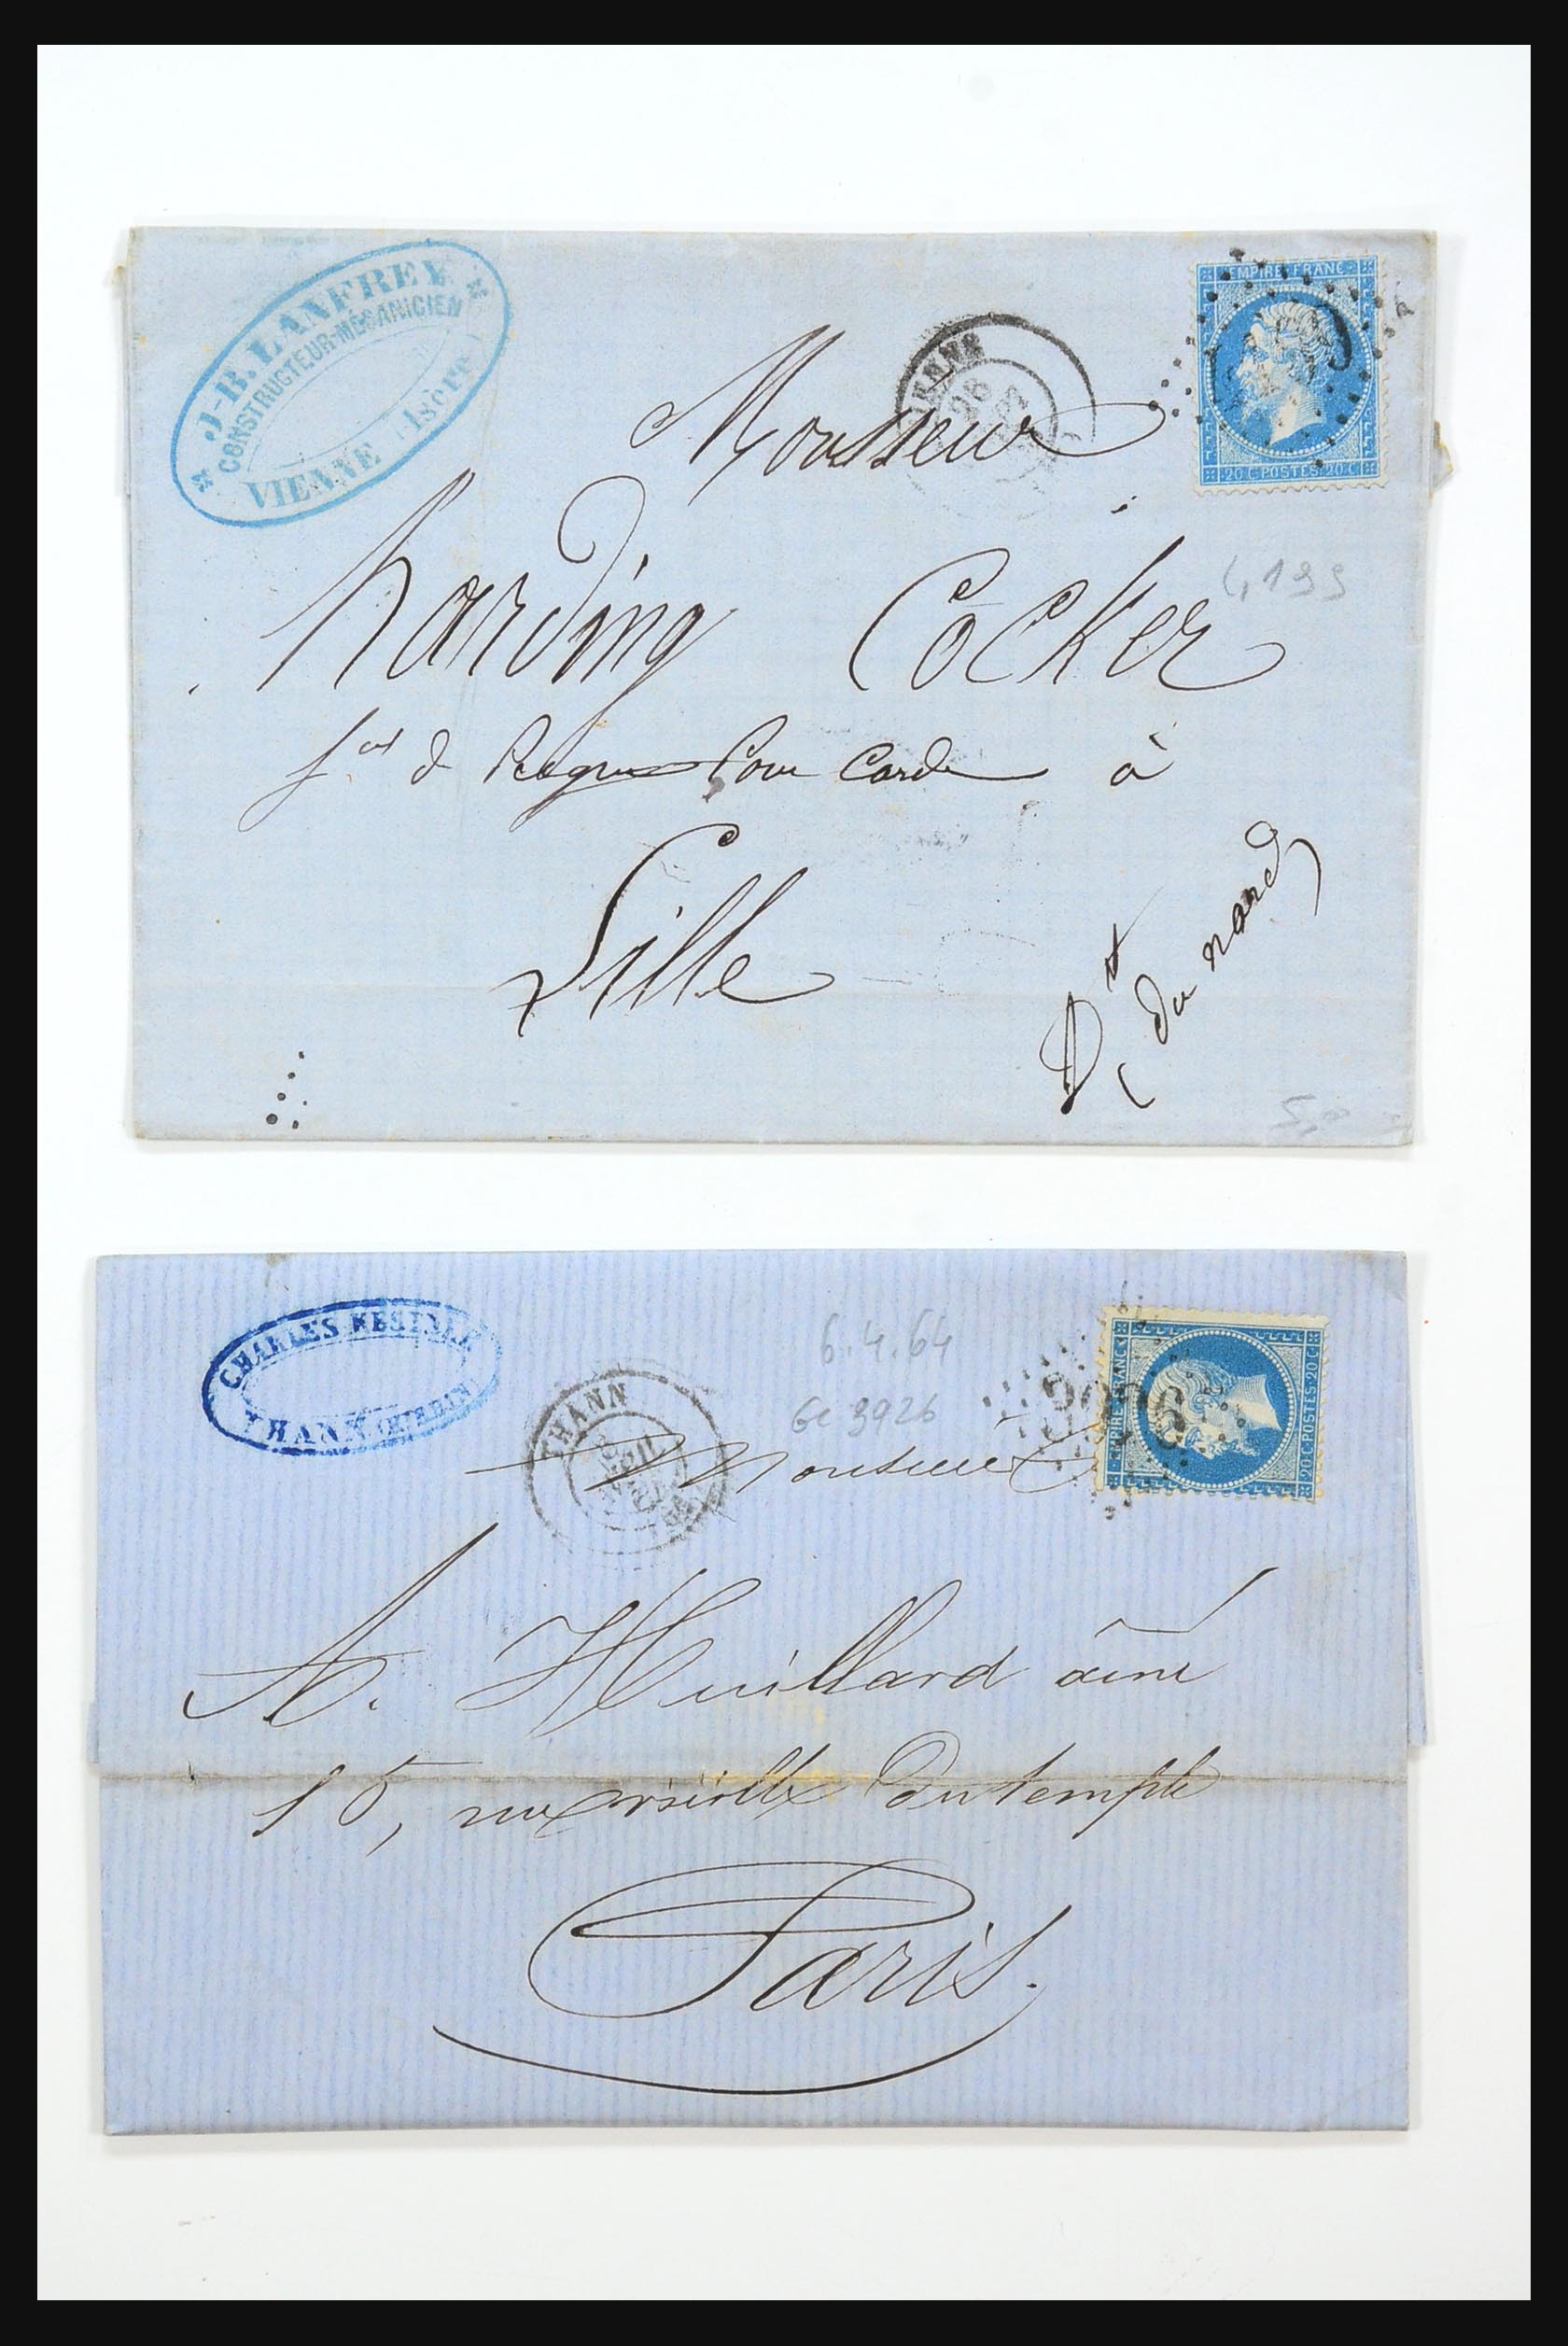 J-B. LANFREY
CONSTRUCTEUR-MÉCANICIEN
VIENNE (Isère)
EMPIRE FRANC
20 C POSTES 20 C
VIENNE
28
Monsieur
harding Cocker
fct de Peignes Pour Carde à
Lille
Dt du nord
CHARLES KESTNER
THANN (HT RHIN)
6.4.64
Gc 3926
THANN
6
AVRIL
64
EMPIRE FRANC
20 C POSTES 20 C
Monsieur
A. Huillard ainé
15, rue vieille du temple
Paris.